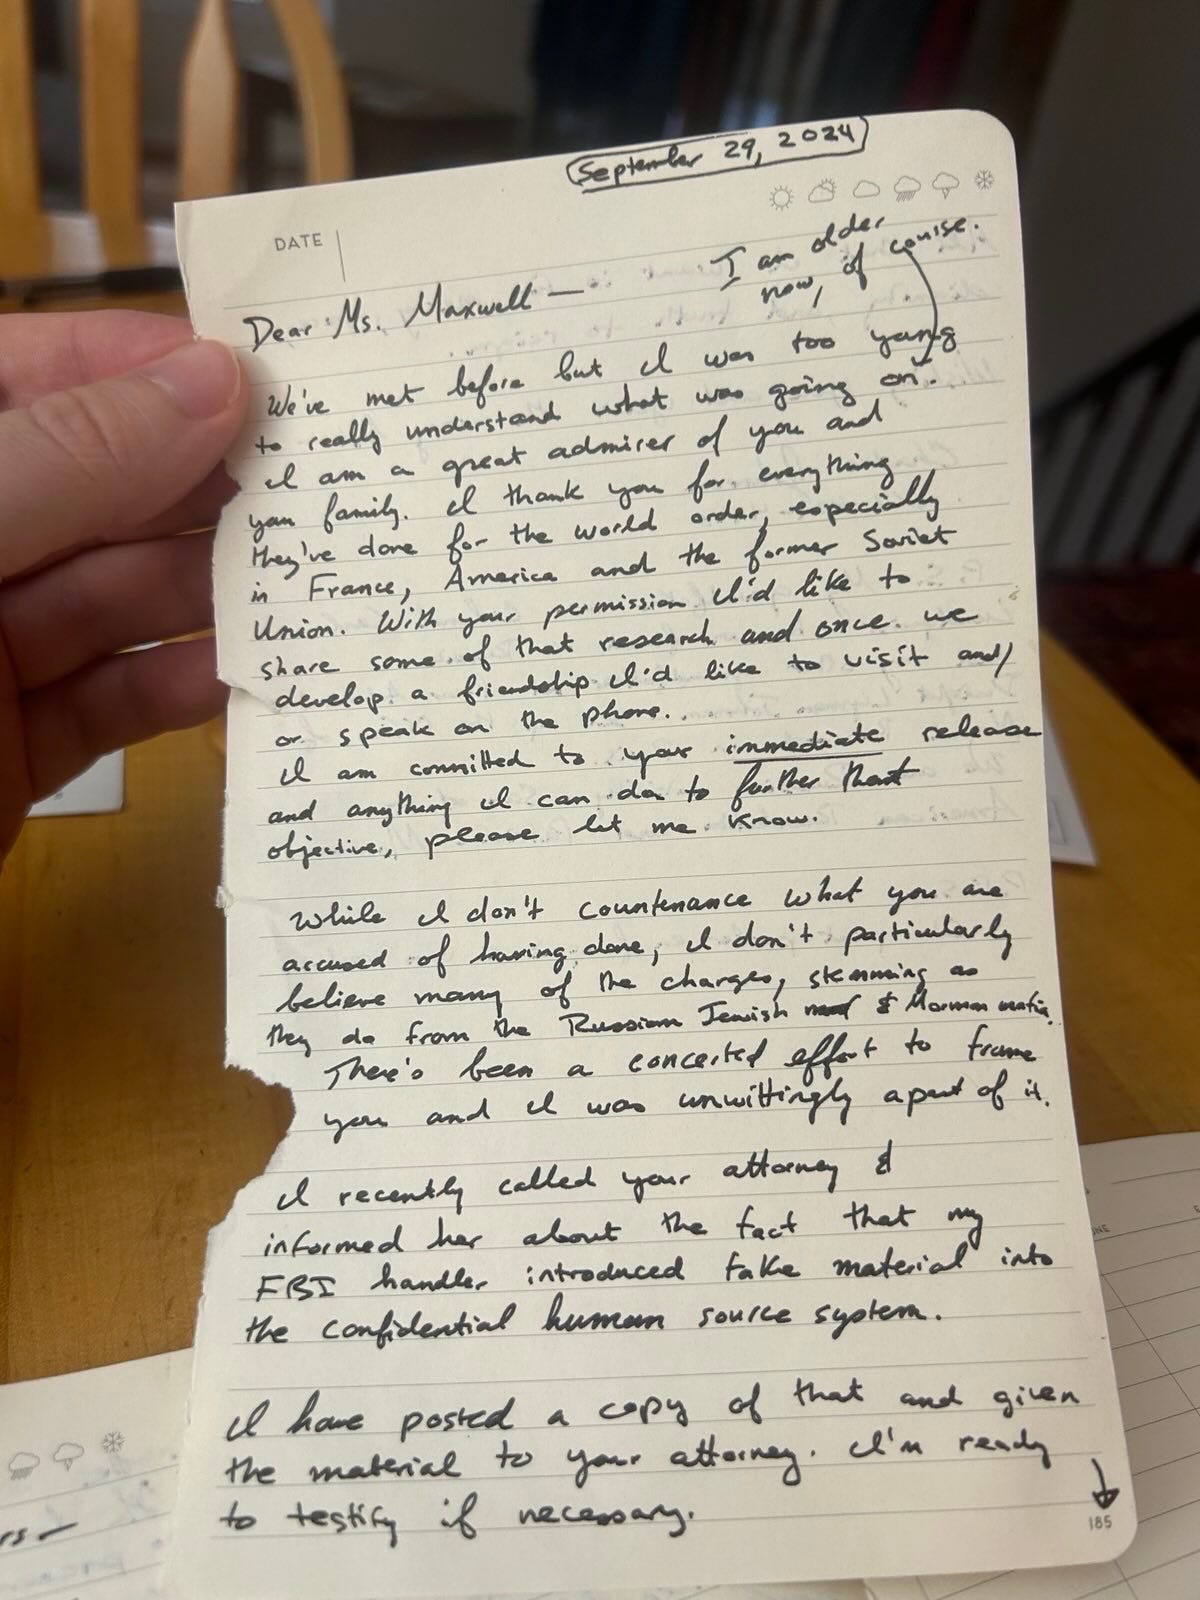 September 29, 2024
DATE
I am older
now, of couise.
Dear Ms. Maxwell —
We've met before but I was too young
to really understand what was going on.
I am a great admirer of you and
you family. I thank you for everything
they've done for the world order, especially
in France, America and the former Soviet
Union. With your permission I'd like to
share some of that research and once we
develop a friendship I'd like to visit and/
or speak on the phone.
I am committed to your immediate release
and anything I can do to further that
objective, please let me know.
While I don't countenance what you are
accused of having done, I don't particularly
believe many of the charges, stemming as
they do from the Russian Jewish & Mormon mafia.
There's been a concerted effort to frame
you and I was unwittingly apart of it.
I recently called your attorney &
informed her about the fact that my
FBI handler introduced fake material into
the confidential human source system.
I have posted a copy of that and given
the material to your attorney. I'm ready
to testify if necessary.
185
rs —